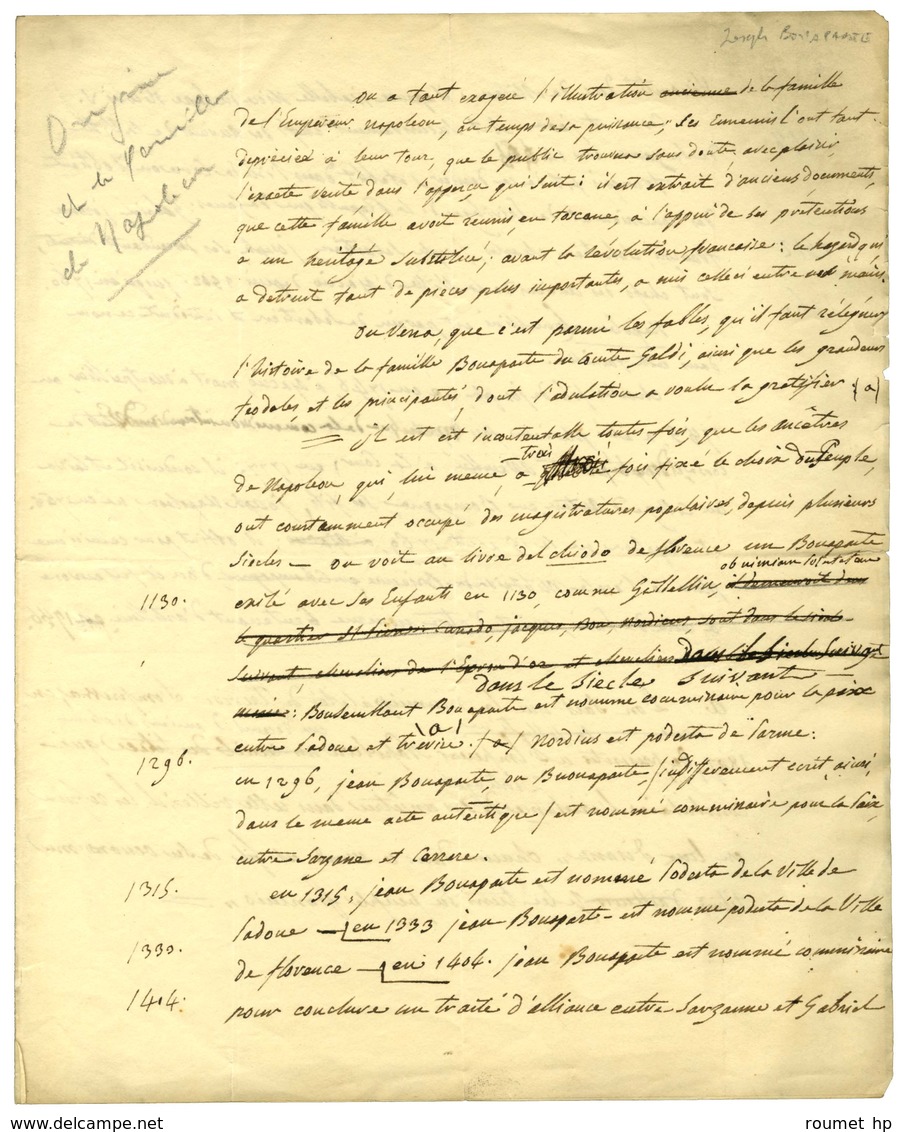 Joseph BONAPARTE
Origine
de la famille
de Napoleon
On a tant exageré l'illustration ancienne de la famille
de l'Empereur Napoleon, au temps de sa puissance, ses Ennemis l'ont tant
depréciée à leur tour, que le public trouvera sans doute avec plaisir,
l'exacte verité dans l'apperçu qui suit: il est extrait d'anciens documents,
que cette famille avoit reunis, en toscane, à l'appui de ses prétentions
à un heritage substitué; avant la révolution francaise: le hazard qui
a detruit tant de pieces plus importantes, a mis celle ci entre nos mains.
On verra, que c'est parmi les fables, qu'il faut réléguer
l'histoire de la famille Bonaparte du Comte Galdi, ainsi que les grandeurs
feodales, et les principautés, dont l'adulation a voulu la gratifier (a)
Il est est incontestable toutes fois, que les ancêtres
trois
de Napoleon, qui, lui meme, a fois fixé le choix du Peuple,
ont constamment occupé des magistratures populaires, depuis plusieurs
siecles — on voit au livre del chiodo de florence un Bonaparte
1130. exilé avec ses Enfants en 1130, comme Gibellin, il demeuroit dans
le quartier St jacques, Bon, Nordius, sont dans le siecle
suivant, chevaliers de l'Eperon d'or et chevaliers dans le siecle suivant
dans le siecle suivant
Bonaparte est nommé commissaire pour la paix
(a)
entre Padoue et trevise. (a) Nordius est podesta de Parme:
1296. en 1296, jean Bonaparte, ou Buonaparte, (indifferement ecrit ainsi,
dans le meme acte autentique) est nommé commissaire pour la Paix,
entre Sarzane et Carrere.
1315. en 1315, jean Bonaparte est nommé Podesta de la Ville de
Padoue — en 1333 jean Bonaparte — est nommé podesta de la Ville
1333. de florence — en 1404. jean Bonaparte est nommé commissaire
1404. pour conclure un traité d'alliance entre Sarzanne et Gabriel
roumet hp